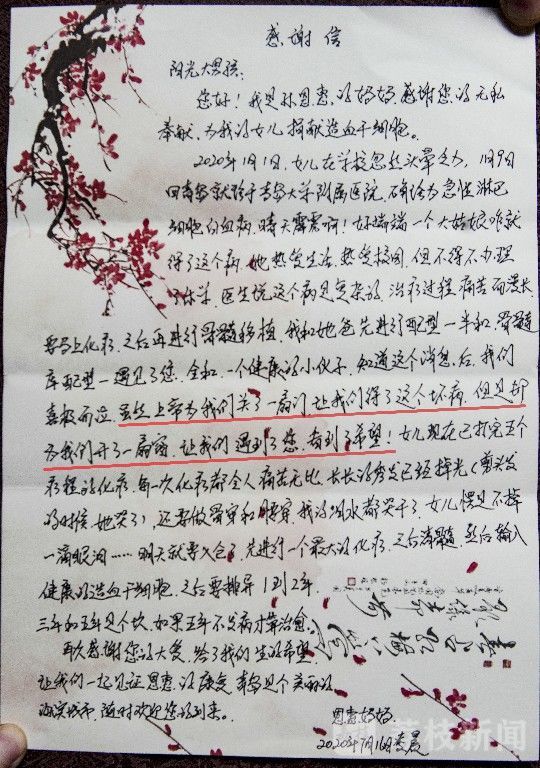 感谢信
阳光大男孩：
您好！我是孙恩惠的妈妈，感谢您的无私
奉献，为我的女儿捐献造血干细胞。
2020年1月1日，女儿在学校忽然头晕乏力，1月9日
回青岛就诊于青岛大学附属医院，确诊为急性淋巴
细胞白血病，晴天霹雳啊！好端端一个大姑娘咋就
得了这个病，她热爱生活，热爱校园，但不得不办理
了休学，医生说这个病是复杂的，治疗过程痛苦而漫长，
要马上化疗，之后再进行骨髓移植，我和她爸先进行配型一半和，骨髓
库配型一遇见了您，全和，一个健康的小伙子，知道这个消息后，我们
喜极而泣，虽然上帝为我们关了一扇门，让我们得了这个坏病，但是却
为我们开了一扇窗，让我们遇到了您，看到了希望！女儿现在已打完五个
疗程的化疗，每一次化疗都令人痛苦无比，长长的秀发已经掉光（剪头发
的时候，她哭了）还要做骨穿和腰穿，我的泪水都哭干了，女儿愣是不掉
一滴眼泪……明天就要入仓了，先进行一个最大的化疗，之后清髓，然后输入
健康的造血干细胞，之后要排异1到2年，
三年和五年是个坎，如果五年不发病才算治愈。
再次感谢您的大爱，给了我们生的希望，
让我们一起见证恩惠的康复，青岛是个美丽的
海滨城市，随时欢迎您的到来。
恩惠妈妈
2020年7月16日凌晨
荔枝新闻